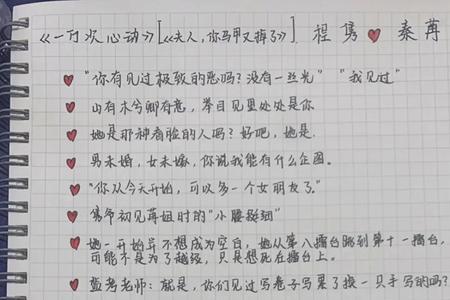 《一万次心动》[《夫人,你马甲又掉了》]. 程隽♥秦苒
♥ “你有见过极致的恶吗?没有一丝光” “我见过”
♥ 山有木兮卿有意,举目见里处处是你
♥ 她是那种看脸的人吗?好吧,她是.
♥ 男未婚,女未嫁,你说我能有什么企图。
♥ “你从今天开始,可以多一个女朋友了。”
♥ 隽爷初见苒姐时的“小腰挺细”
♥ 她一开始并不想成为空白,她从第八擂台跳到第十一擂台,
可能不是为了越级,只是想死在擂台上。
♥ 监考老师:就是,你们见过写卷子写累了换一只手写的吗?